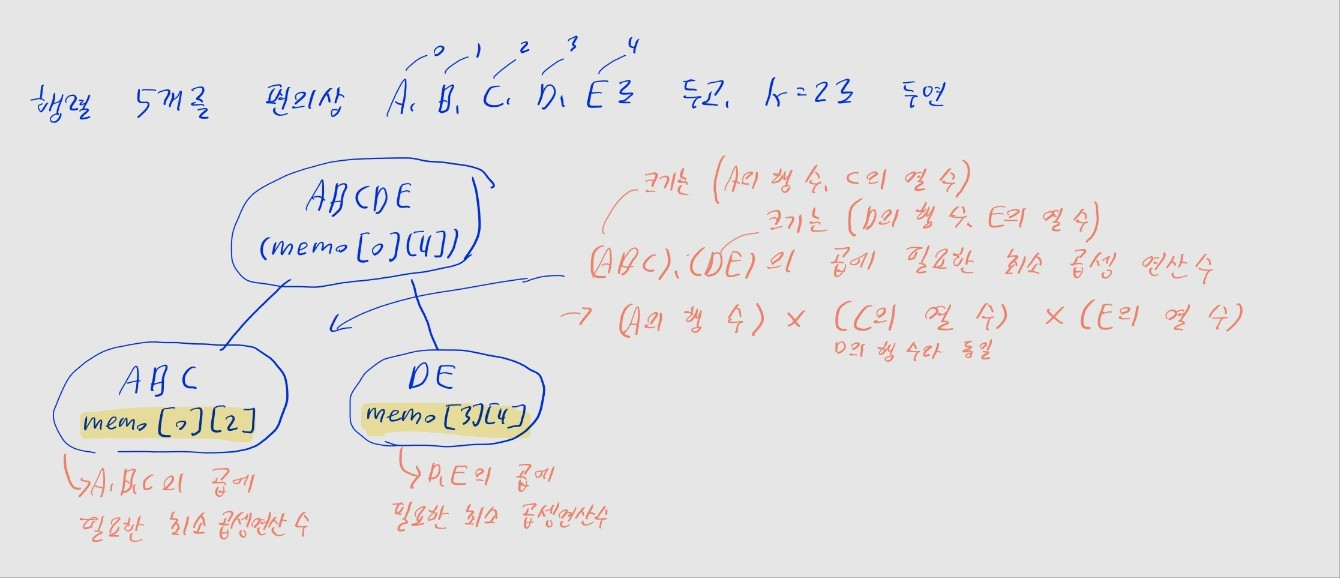 0 1 2 3 4
행렬 5개를 편의상 A, B, C, D, E로 두고, k=2로 두면
ABCDE
(memo[0][4])
크기는 (A의 행 수, C의 열 수)
크기는 (D의 행 수, E의 열 수)
(ABC), (DE)의 곱에 필요한 최소 곱셈 연산 수
→ (A의 행 수) × (C의 열 수) × (E의 열 수)
D의 행 수와 동일
ABC
memo[0][2]
DE
memo[3][4]
A,B,C의 곱에
필요한 최소 곱셈연산 수
D,E의 곱에
필요한 최소 곱셈연산수